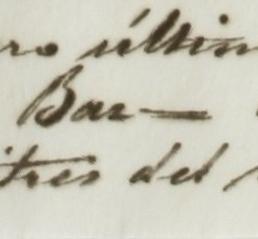 ro últim
Bar—
itres del